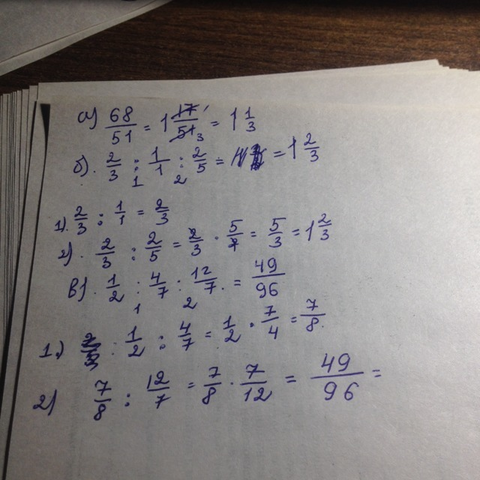 а) 68/51 = 1 17/51 = 1 1/3
б). 2/3 : 1/1 : 2/5 = 1 2/3
1 2
1). 2/3 : 1/1 = 2/3
2). 2/3 : 2/5 = 2/3 · 5/2 = 5/3 = 1 2/3
в). 1/2 : 4/7 : 12/7 = 49/96
1 2
1.) 1/2 : 4/7 = 1/2 · 7/4 = 7/8.
2) 7/8 : 12/7 = 7/8 · 7/12 = 49/96 =